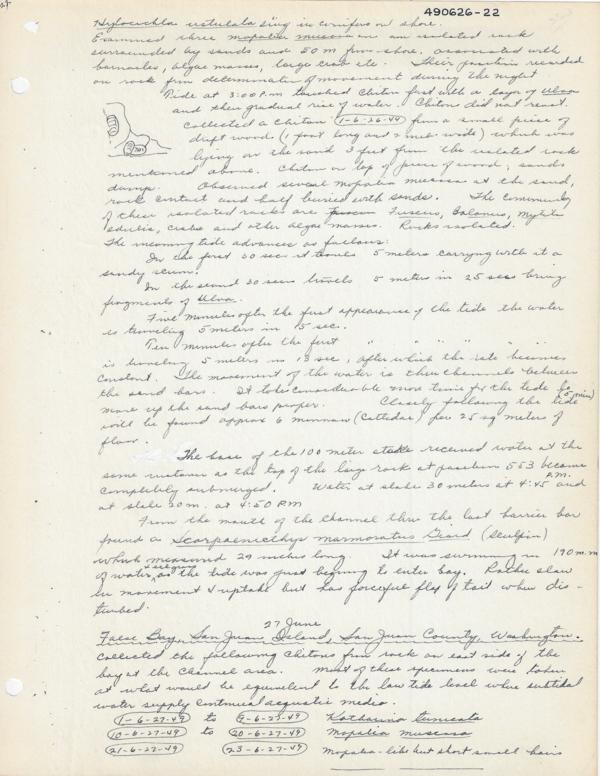 490626-22
Hylocichla ustulata sing in conifers on shore.
Examined three Mopalia muscosa on an isolated rock
surrounded by sands and 50 m from shore, associated with
barnacles, algae masses, large crab etc. Their position recorded
on rock for determination of movement during the night
Tide at 3:00 P.m touched chiton first with a layer of Ulva
and then gradual rise of water. Chiton did not react.
Collected a Chiton 1-6-26-49 from a small piece of
drift wood (1 foot long and 2 inch wide) which was
lying on the sand 3 feet from the isolated rock
mentioned above. Chiton on top of piece of wood, sands
damp. Observed several Mopalia muscosa at the sand,
rock contact and half buried with sands. The community
of these isolated rocks are Fuscus, Balanus, Mytilis
edulis, crabs and other algae masses. Rocks isolated.
The incoming tide advances as follows:
In the first 30 secs it travels 5 meters carrying with it a
sandy scum.
In the second 30 secs travels 5 meters in 25 secs bring
fragments of Ulva.
Five minutes after the first appearance of the tide the water
is traveling 5 meters in 15 sec.
Ten minutes after the first " " " " "
is traveling 5 meters in 13 sec, after which the rate becomes
constant. The movement of the water is thru channels between
the sand bars. It takes considerable more time for the tide to
move up the sand bars proper. (5 min) Closely following the tide
will be found approx 6 minnows (Cottidae) per 25 sq meters of
floor.
The base of the 100 meter stake received water at the
same instance as the top of the large rock at position 553 became
completely submerged. Water at stake 30 meters at 4:45 P.M. and
at stake 20m. at 4:50 P.M
From the mouth of the channel thru the last barrier bar
found a Scorpaenicthys marmoratus Girard (Sculpin)
which measured 29 inches long. It was swimming in 190 m.m
of water, as the tide was just begining to enter bay. Rather slow
in movement & uptake but has forceful flap of tail when dis-
turbed.
27 June
False Bay, San Juan Island, San Juan County, Washington.
Collected the following Chitons from rock on east side of the
bay at the Channel area. Most of these specimens were taken
at what would be equivalent to the low tide level where subtidal
water supply continual aquatic media.
1-6-27-49 to 9-6-27-49 Katharina tunicata
10-6-27-49 to 20-6-27-49 Mopalia muscosa
21-6-27-49 23-6-27-49 Mopalia-like but short small hairs